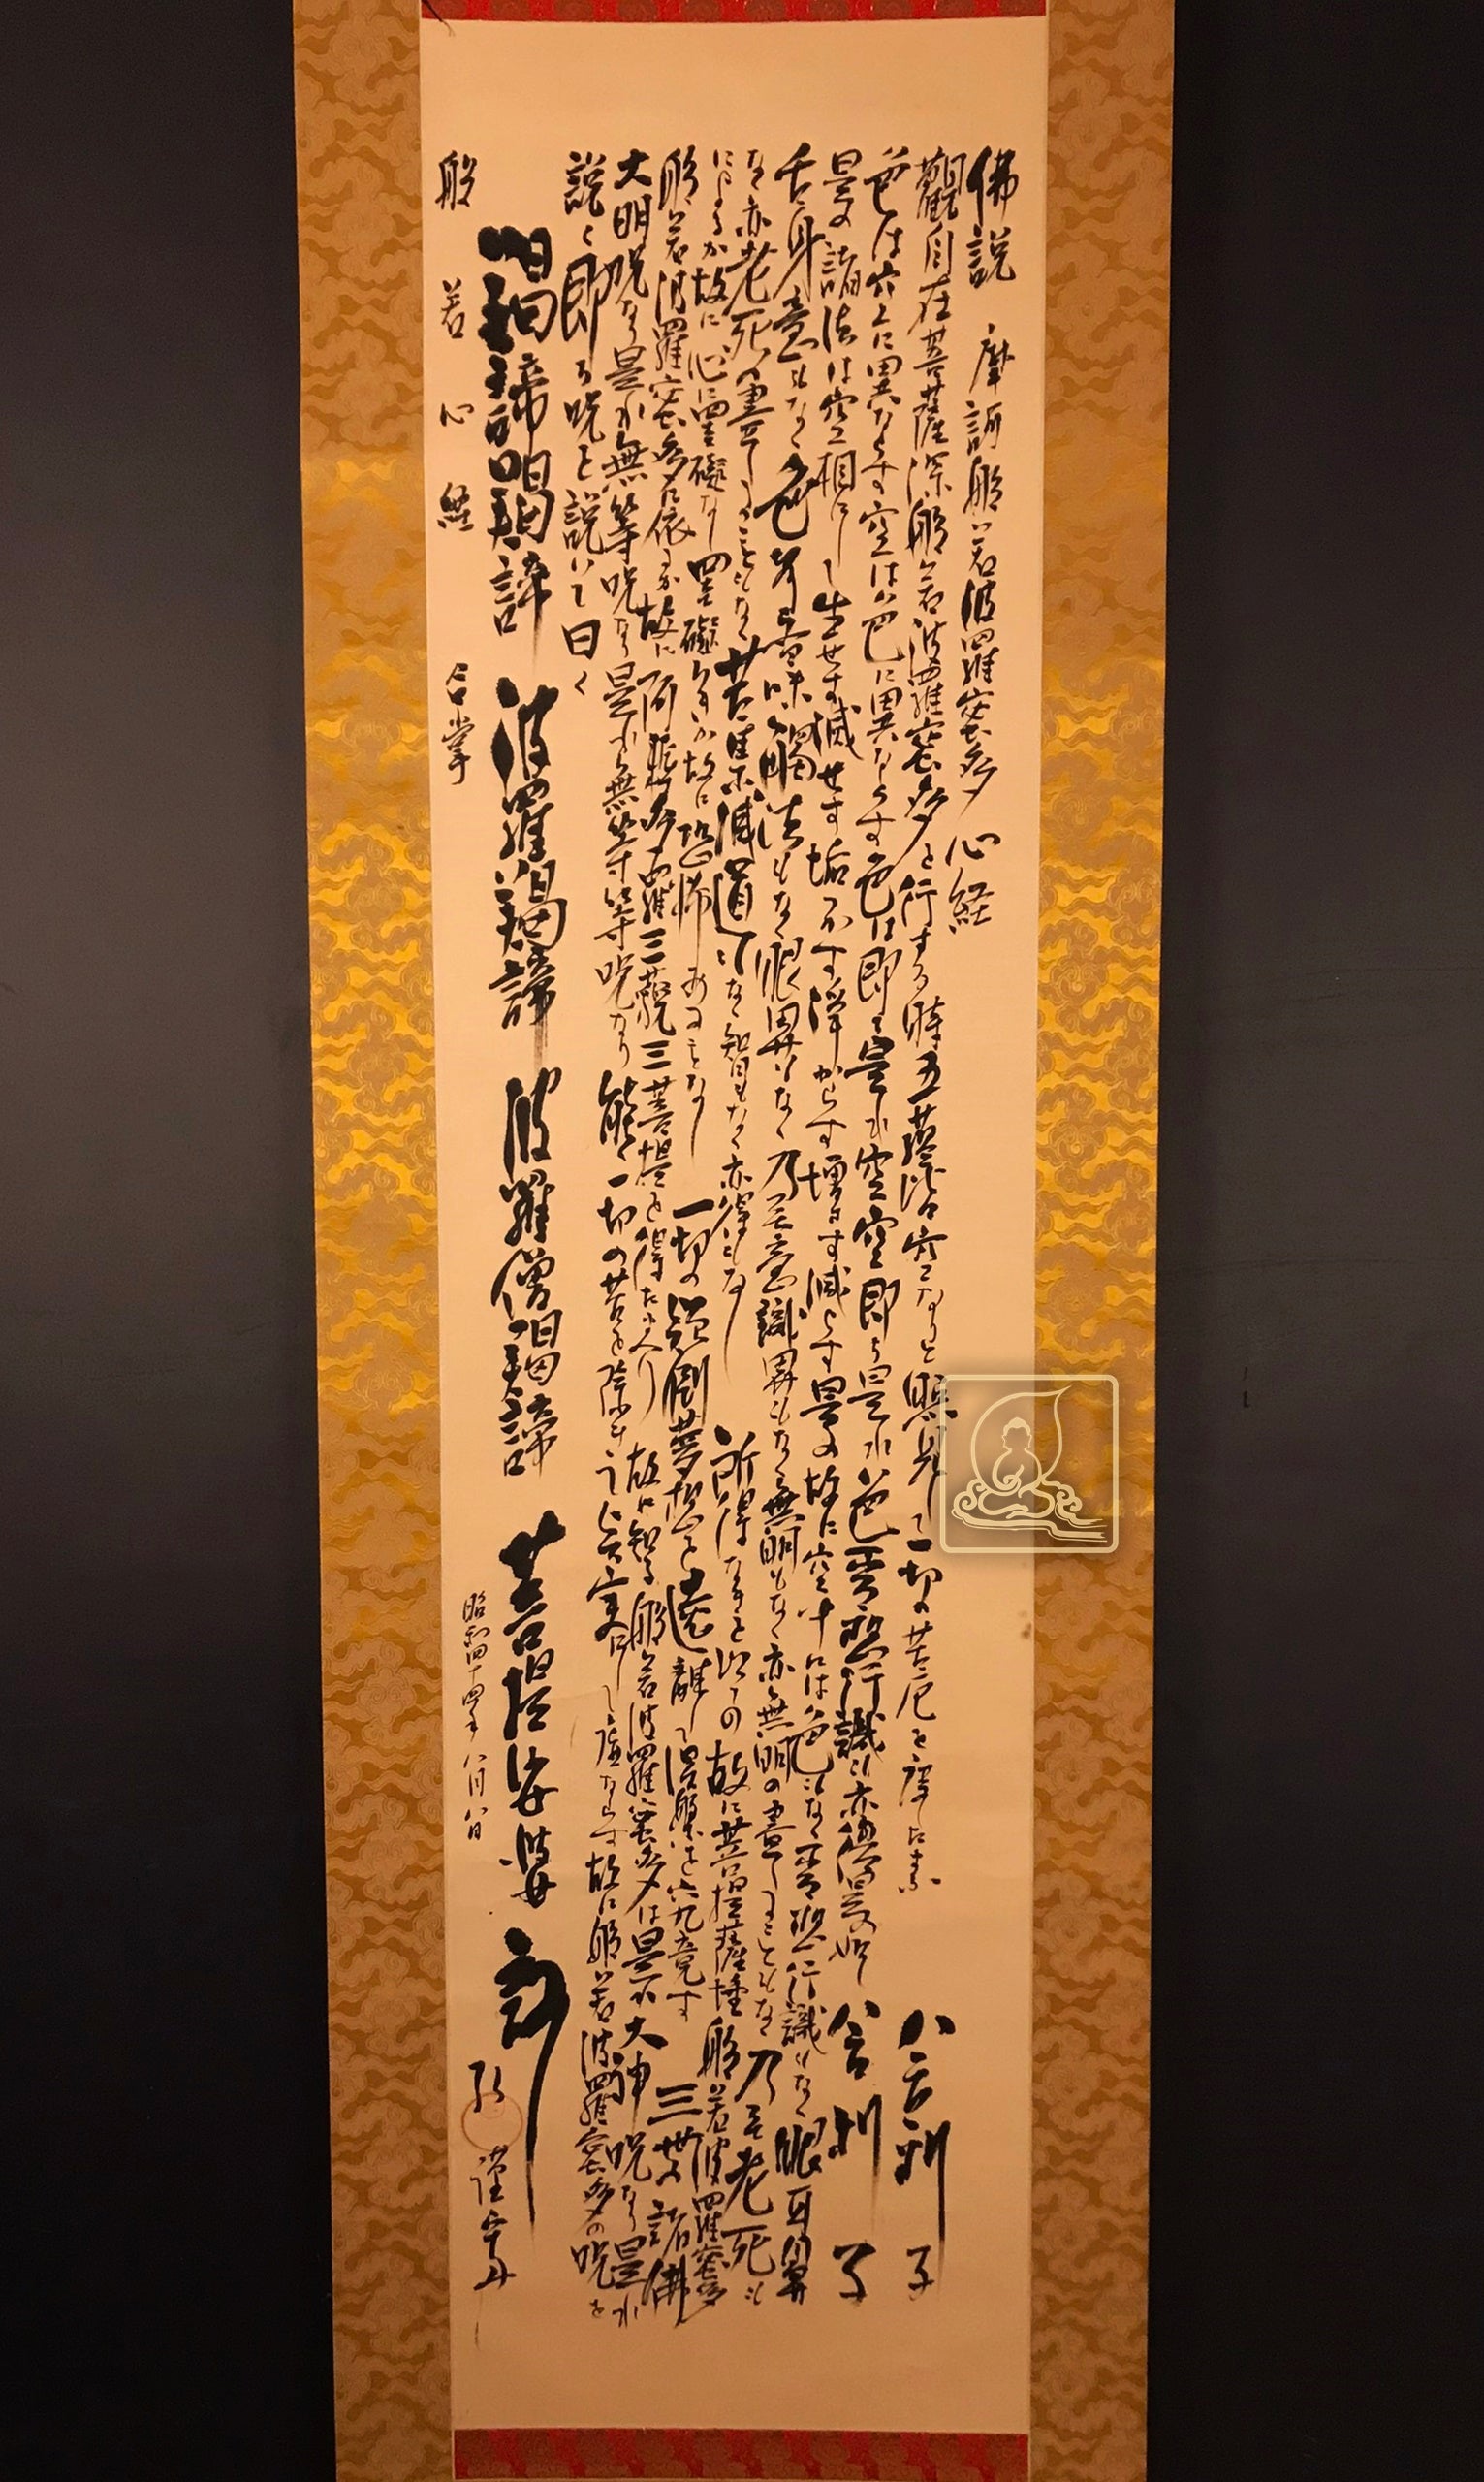 佛説 摩訶般若波羅蜜多心経
觀自在菩薩深般若波羅蜜多を行する時五蘊皆空なりと照見して一切の苦厄を度したまふ 舎利子
色は空に異ならす空は色に異ならす色は即ち是れ空空即ち是れ色受想行識も亦復是の如し 舎利子
是の諸法は空相にして生せす滅せす垢つかす浄からす増さす減らす是の故に空中には色もなく受想行識もなく眼耳鼻
舌身意もなく色声香味觸法もなく眼界もなく乃至意識界もなく無明もなく亦無明の盡くることもなく乃至老死も
なく亦老死の盡くることもなく苦集滅道もなく智もなく亦得もなし 所得なきを以ての故に菩提薩埵般若波羅蜜多
によるか故に心に罣礙なし罣礙なきか故に恐怖あることなし 一切の顛倒夢想を遠離して涅槃を究竟す 三世の諸佛
般若波羅蜜多に依るか故に阿耨多羅三藐三菩提を得たまへり 故に知る般若波羅蜜多は是れ大神呪なり是れ
大明呪なり是れ無等呪なり是れ無等等呪なり能く一切の苦を除き 真実にして虚ならす故に般若波羅蜜多の呪を
説く即ち呪を説いて曰く
羯諦羯諦 波羅羯諦 波羅僧羯諦 菩提娑婆訶
般若心経 合掌 昭和四十四年八月八日 謹写